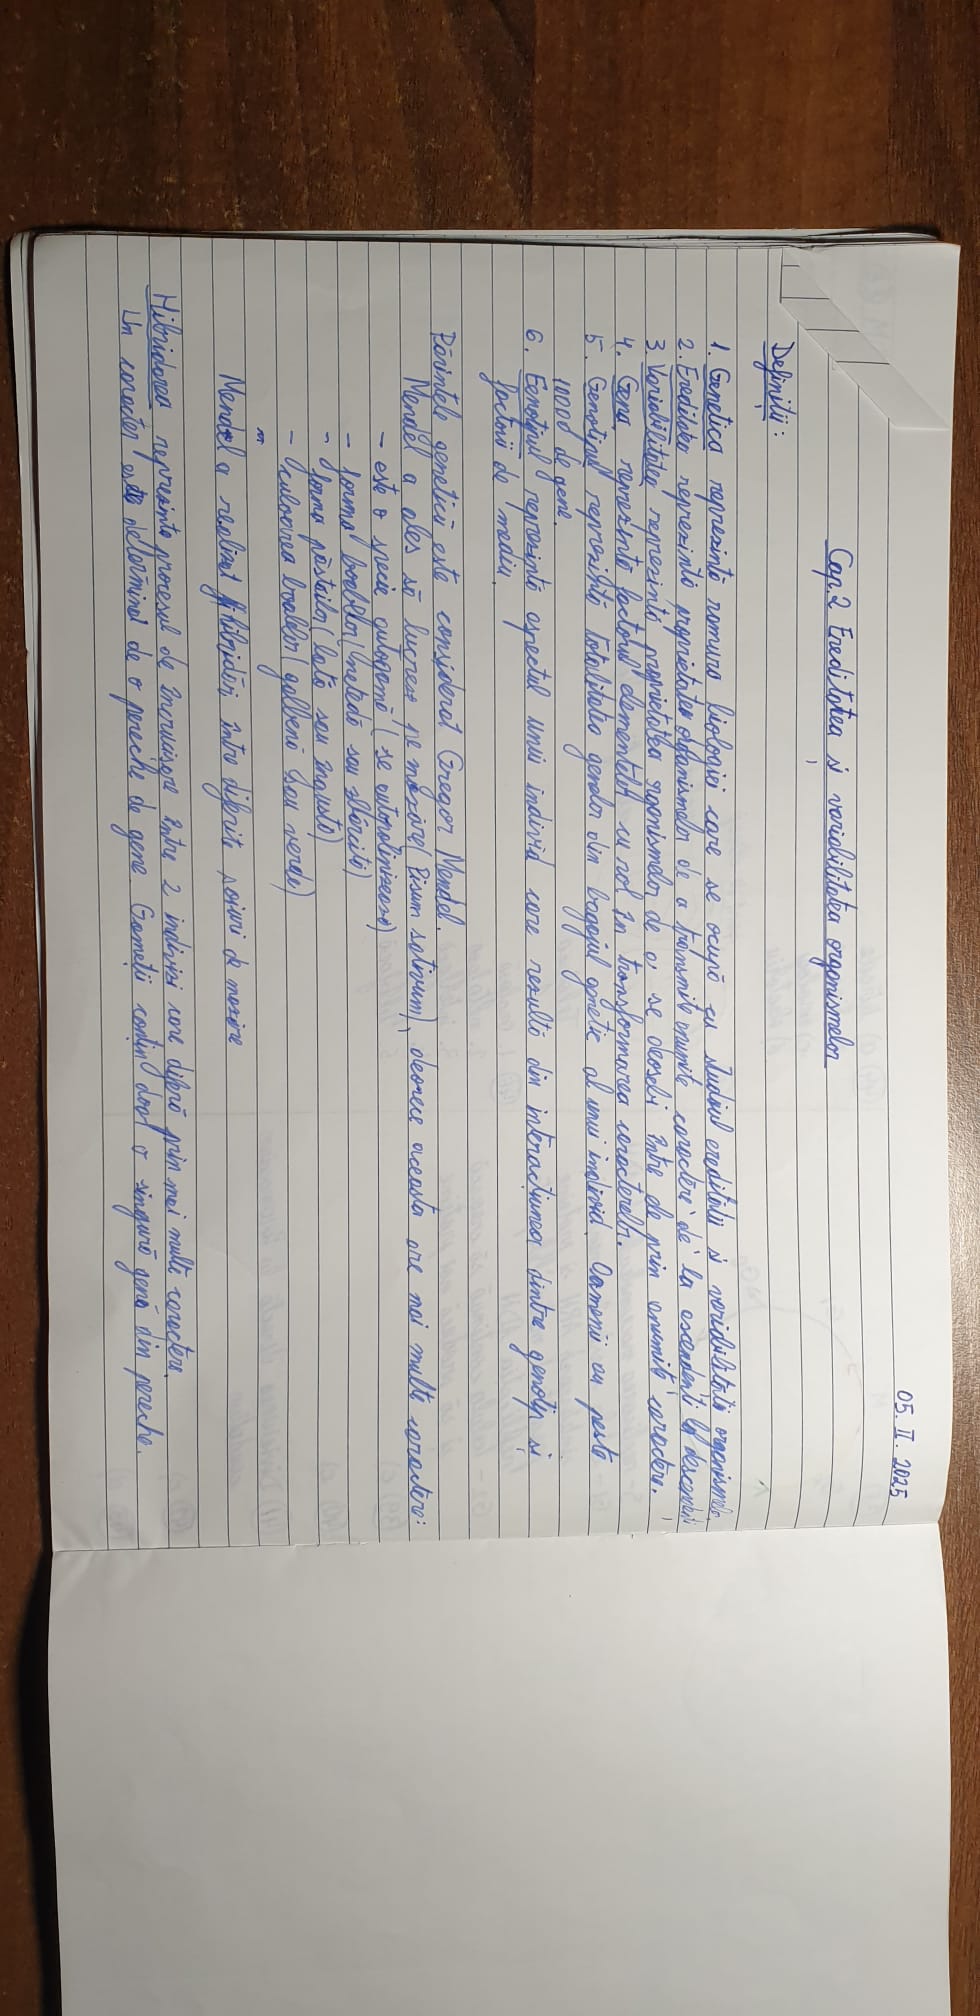 05. II. 2025
Cap.2 Ereditatea și variabilitatea organismelor
Definiții:
1. Genetica reprezintă ramura biologiei care se ocupă cu studiul eredității și variabilității organismelor
2. Ereditatea reprezintă proprietatea organismelor de a transmite anumite caractere de la ascendenți la descendenți
3. Variabilitatea reprezintă proprietatea organismelor de a se deosebi între ele prin anumite caractere.
4. Gena reprezintă factorul elementelor cu rol în transformarea caracterelor.
5. Genotipul reprezintă totalitatea genelor din bagajul genetic al unui individ. Oamenii au peste
10000 de gene.
6. Eenotipul reprezintă aspectul unui individ care rezultă din interacțiunea dintre genotip și
factorii de mediu.
Părintele geneticii este considerat Gregor Mendel.
Mendel a ales să lucreze pe mazăre (Pisum sativum), deorece aceasta are mai multe caractere:
- este o specie autogamă (se autopolinizează)
- forma boabelor (netedă sau zbârcită)
- forma păstăilor (lată sau îngustă)
- culoarea boabelor (galbenă sau verde)
Mendel a realizat hibridări între diferite soiuri de mazăre
Hibridarea reprezintă procesul de încrucișare între 2 indivizi care diferă prin mai multe caractere.
Un caracter este determinat de o pereche de gene. Gameții conțin doar o singură genă din pereche.